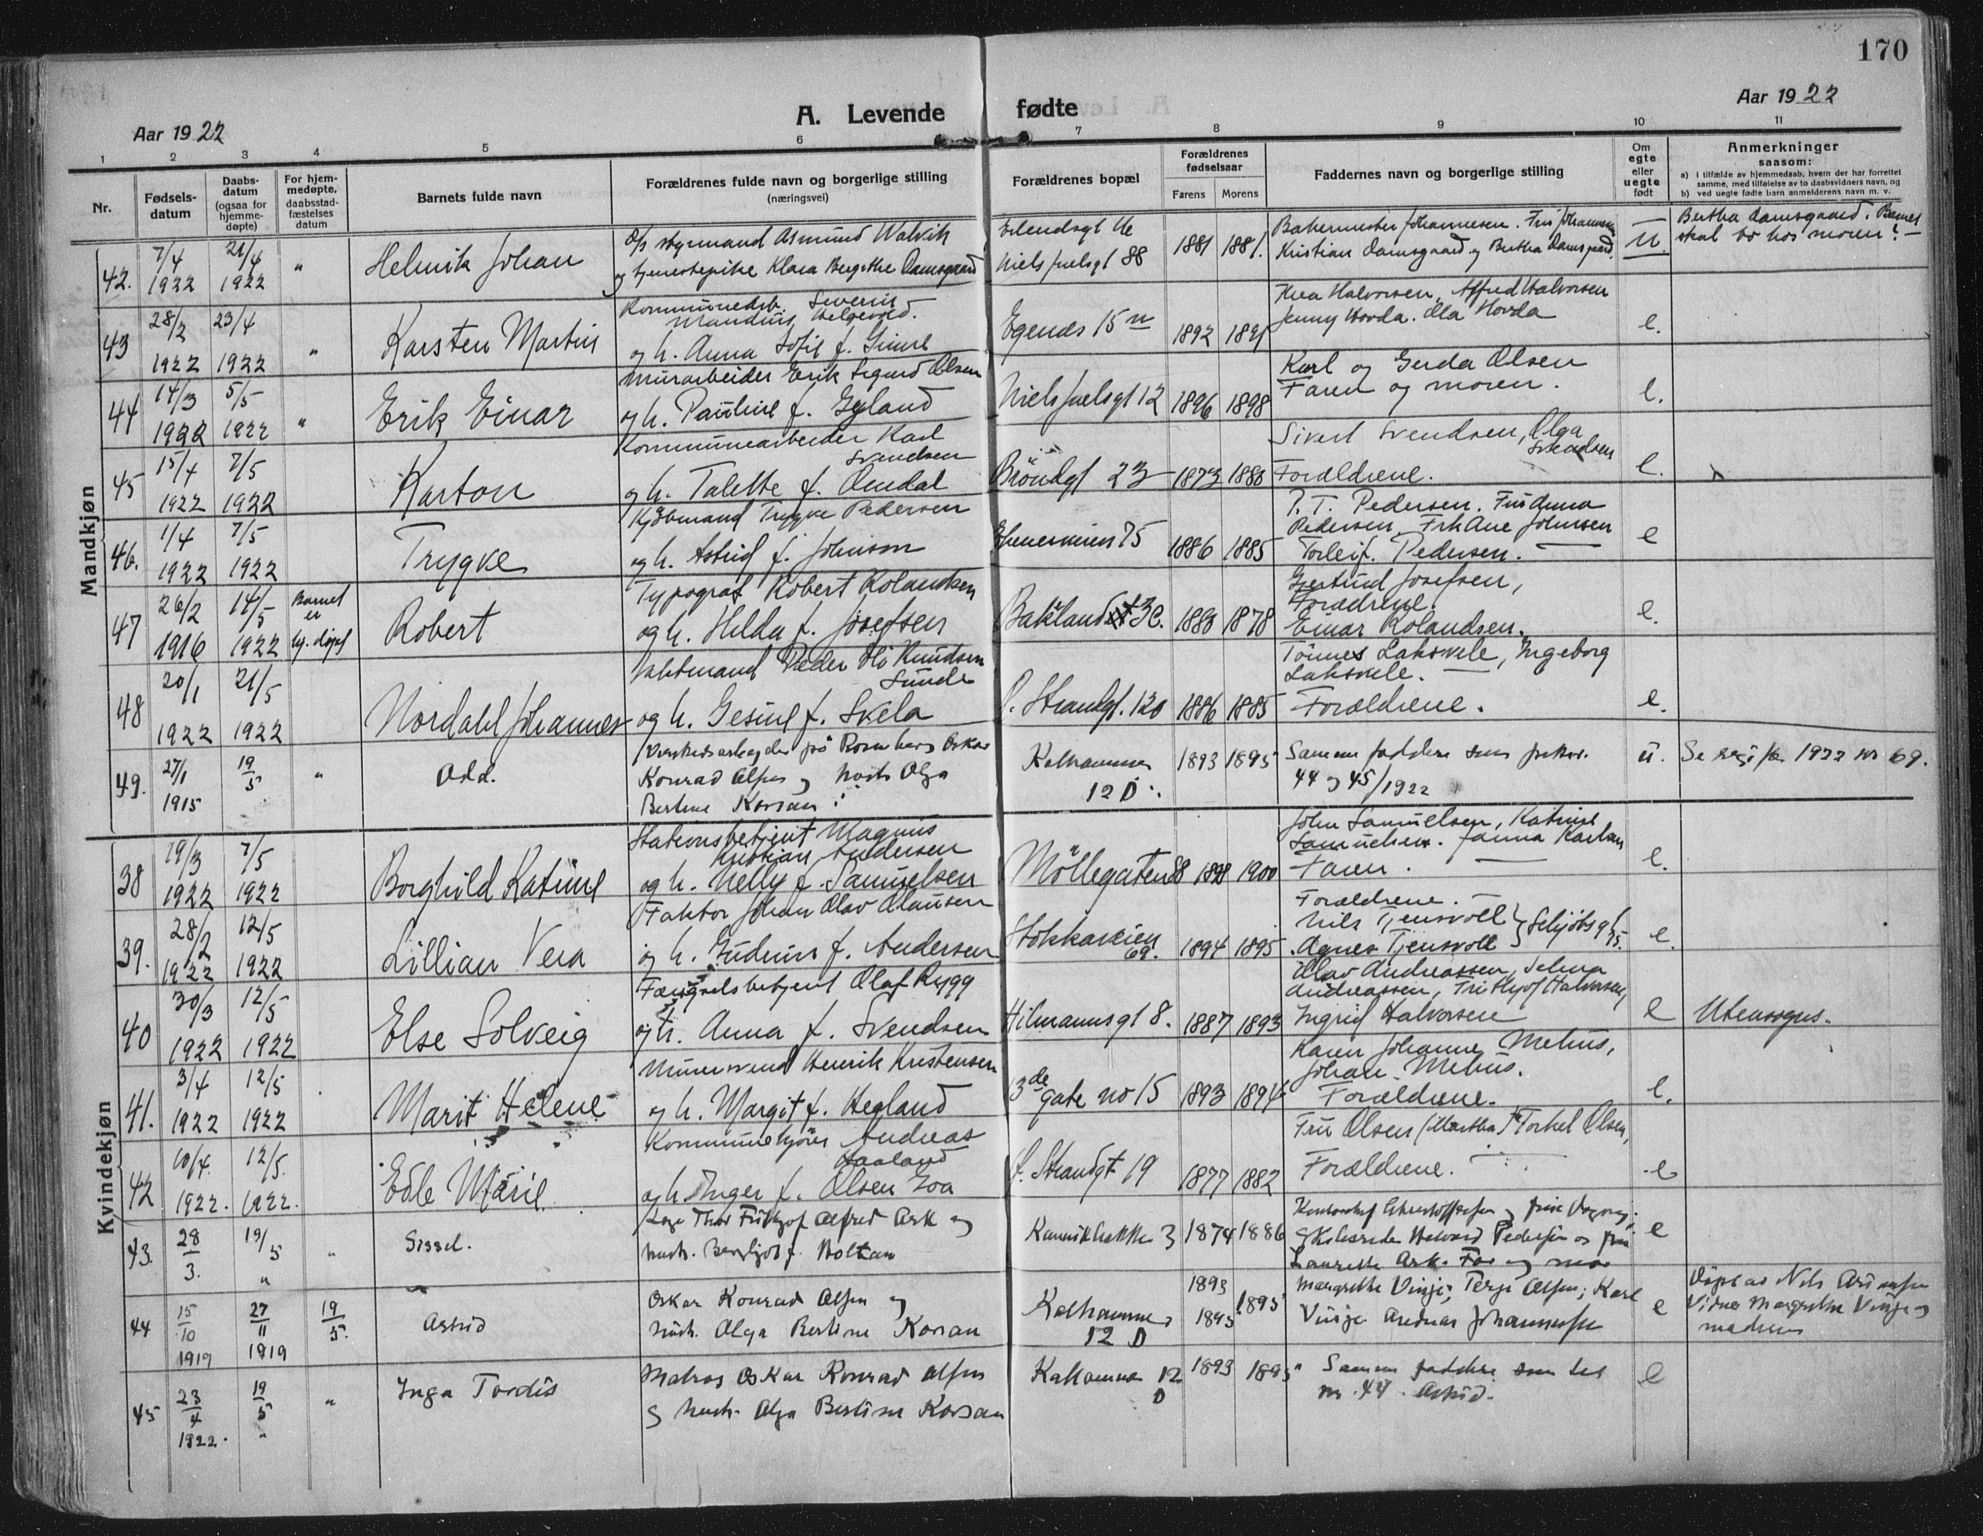 170
Aar 1922
A. Levende fødte
Aar 1922
1 2 3 4 5 6 7 8 9 10 11
Nr.
Fødsels-
datum
Daabs-
datum
(ogsaa for
hjemme-
døpte)
For hjem-
medøpte,
daabsstad-
fæstelses
datum
Barnets fulde navn
Forældrenes fulde navn og borgerlige stilling
(næringsvei)
Forældrenes bopæl
Forældrenes
fødselsaar
Farens Morens
Faddernes navn og borgerlige stilling
Om
egte
eller
uegte
født
Anmerkninger
saasom:
a) i tilfælde av hjemmedaab, hvem der har forrettet
samme, med tilføielse av to daabsvidners navn, og
b) ved uegte fødte barn anmelderens navn m. v.
Mandkjøn
42. 7/4 1922 21/4 1922 " Helmik Johan
styrmand Asmund Walvik
og tjenestepike Klara Bergithe Damsgaard
Niels Juelsgt 88
1881 1881.
Bakermester Johannesen. Fru Johannesen
Kristian Damsgaard og Bertha Damsgaard.
u.
Bertha Damsgaard. Barnet
skal bo hos moren.
43 28/2 1922 23/4 1922 " Karsten Martin
Severin
og h. Anna Sofie f. Gimre
Egenes 15
1892 1891
Thea Halvorsen, Alfred Halvorsen
Jenny Hovda. Ola Hovda
e.
44 14/3 1922 5/5 1922 " Erik Einar
Murarbeider Erik Sigurd Olsen
og h. Pauline f. Gyland
Niels Juelsgt 12
1896 1898
Karl og Gerda Olsen
Faren og moren.
e.
45 15/4 1922 7/5 1922 Karton
Kommunearbeider Karl
Svendsen
og h. Talette f. Omdal
Bröndgt 23
1873 1880
Sivert Svendsen, Olga
Svendsen
Forældrene.
e.
46. 1/4 1922 7/5 1922 Trygve
Kjøbmand Trygve Pedersen
og h. Astrid f. Johnson
75
1886 1885
P. T. Pedersen. Fru Anna
Pedersen, Frk Ane Johnsen
Torleif Pedersen.
e
47 26/2 1916 14/5 1922 Barnet er hj. døpt Robert
Typograf Robert Rolandsen
og h. Hilda f. Josefsen
Bakkland
1883 1878
Gjertrud Josefsen,
Forældrene.
Einar Rolandsen.
e.
48 20/1 1922 21/5 1922 Nordahl Johannes
Peder Knudsen
Sunde
og h. Gesine f. Skela
Ø. Strandgt. 120
1886 1885
Tönnes Laksvele, Ingeborg
Laksvele.
Forældrene.
e.
49. 27/1 1915 19/5 " Odd.
Verkstedsarbeider på Rosenberg Oskar
Konrad Olsen og hustr. Olga
Bertine Korsan
Kalhammer
12 D
1893 1895
Samme faddere som pikebr.
44 og 45/1922
u.
Se 1922 nr 69.
Kvindekjøn
38 19/3 1922 7/5 1922 Borghild Katrine
Stationsbetjent Magnus
Kristian Andersen
og h. Nelly f. Samuelsen
Möllegaten 88
1898 1900
John Samuelsen, Katrine
Samuelsen. Janna Karlsen
Faren.
e.
39. 28/2 1922 12/5 1922 Lillian Vera
Faktor Johan Olav Clausen
og h. Gudrun f. Andersen
Stokkaveien
69.
1894 1895
Forældrene.
Nils Tjensvoll
Agnes Tjensvoll
e.
40 30/3 1922 12/5 1922 Else Solveig
Fængselsbetjent Olaf Rygg
og h. Anna f. Svendsen
Hilmannsgt 8.
1887 1893
Olav Andreassen, Selma
Andreassen, Trithjof Halvorsen,
Ingrid Halvorsen
e
Utensogns.
41. 3/4 1922 12/5 1922 Marit Helene
Murersvend Henrik Kristensen
og h. Margit f. Hegland
3de
gate no 15
1893 1894
Karen Johanne Mehus,
Johan Mehus.
Forældrene.
e.
42 10/4. 1922. 12/5. 1922. Edle Marie.
Kommunekjører Andreas
Aaland
og h. Inger f. Olsen Goa
Ø. Strandgt 19
1877 1882
Fru Olsen (Martha) Torkel Olsen,
Forældrene.
e
43. 28/3. 19/5 " Sissel.
Læge Thor Fritjof Alfred Ark og
hustr. Bergljot f. Holtan
Kannikbakke 3
1874 1886
Laurette Ark. Far og mor
e
44 15/10 1919 27/11 1919 19/5. Astrid
Oskar Konrad Olsen og
hustr. Olga Bertine Korsan
Kalhammer
12 D
1893
1895
1893
Margrethe Vinje; Terje Olsen; Karl
Vinje Andreas Johannesen
e
Døpt av Nils
Vidner Margrethe Vinje og
moderen
45 23/4 1922. 19/5 " Inga Tordis
Matros Oskar Konrad Olsen
og hustr. Olga Bertine Korsan
Kalhammer 12
D
1893 1895
Samme faddere som ved
nr. 44. Astrid.
e